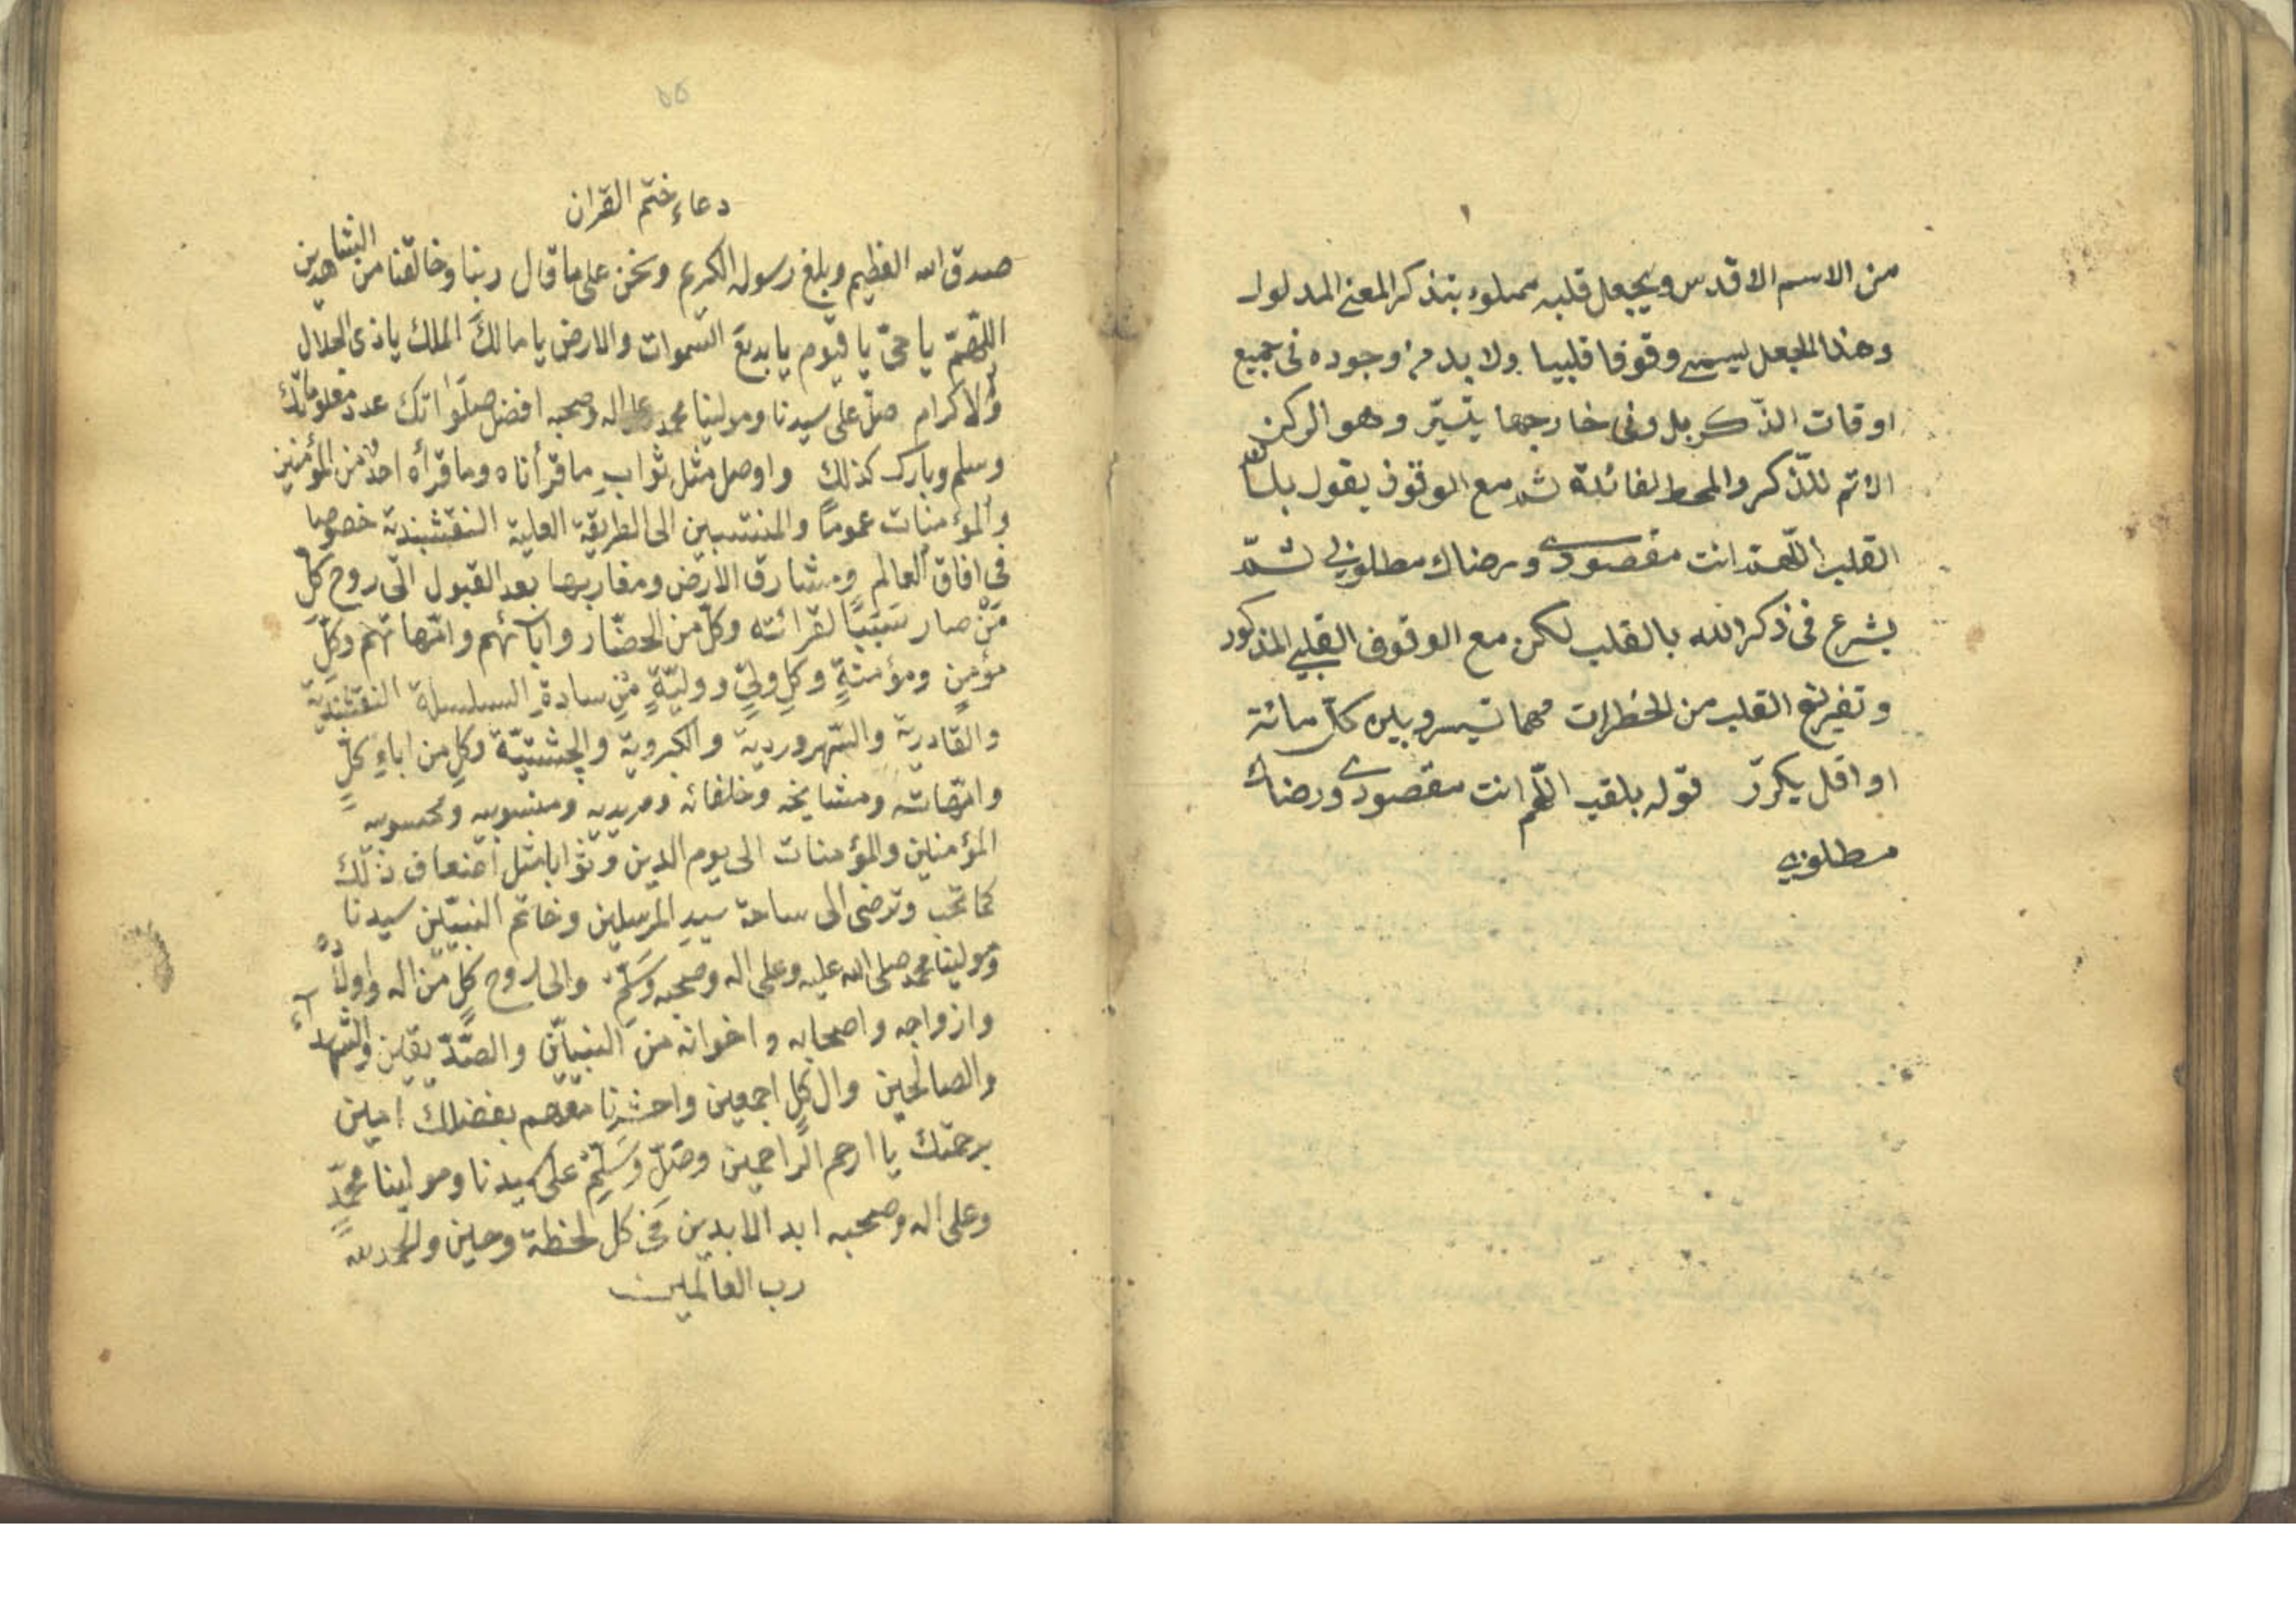 من الاسم الاقدس ويجعل قلبه مملوء بتذكر المعنى المدلول
وهذا الجعل يسمى وقوفا قلبيا ولا بد من وجوده فى جميع
اوقات الذكر بل وفى خارجها يتيسّر وهو الركن
الاتم للذّكر والمحط لفائدته ثم مع الوقوف يقول بلسان
القلب اللهم انت مقصودى ورضاك مطلوبى ثمّ
يشرع فى ذكر الله بالقلب لكن مع الوقوف القلبى المذكور
وتفريغ القلب من الخطرات مهما تيسر وبين كل مائة
او اقل يكرّر قوله بلقب اللّهم انت مقصودى ورضاك
مطلوبى
٥٥
دعاء ختم القران
صدق الله العظيم وبلغ رسوله الكريم ونحن على ما قال ربنا وخالقنا من الشاهدين
اللّهمّ يا حىّ يا قيّوم يا بديعَ السّموات والارض يا مالكَ الملك يا ذى الجلال
والاكرام صلّ على سيدنا ومولينا محمد وعلى اله وصحبه افضل صلَوَاتك عدد معلوماتك
وسلم وبارك كذلك واوصل مثل ثوابِ ما قرأناه وما قرأه احدٌ من المؤمنين
والمؤمنات عمومًا والمنتسبين الى الطريقة العلية النقشبندية خصوصا
فى افاق العالم ومشارق الارض ومغاربها بعد القبول الى روح كلِّ
مَنْ صار سَبَبًا لقرائته وكلّ من الحضّار وابآئهم وامّهاتهم وكلِّ
مؤمنٍ ومؤمنةٍ وكلِ ولىٍّ ووليّةٍ مِنْ سادةِ السلسلة النقشبنديّة
والقادرية والسّهروردية والكبروية والچشتيّة وكلٍ من اباءِ كلٍّ
وامّهاته ومشايخه وخلفائه ومريديه ومنسوبيه ومحسوبيه
المؤمنين والمؤمنات الى يوم الدين وثوابا مثل اضعاف ذلك
كما تحب وترضى الى ساحة سيدِ المرسلين وخاتم النبيّين سيدنا
ومولينا محمد صلى الله عليه وعلى اله وصحبه وَسَلّمْ والى روح كلٍ من اله واولاده
وازواجه واصحابه واخوانه من النبيّين والصّدّيقين والشهدآء
والصالحين وال كلٍ اجمعين واحشرنا معهم بفضلك امين
برحمتك يا ارحم الرّاحمين وصَلِّ وَسَلِّمْ على سيدنا ومولينا محمّدٍ
وعلى اله وصحبه ابد الابدين فى كل لحظة وحين والحمد لله
رب العالمين